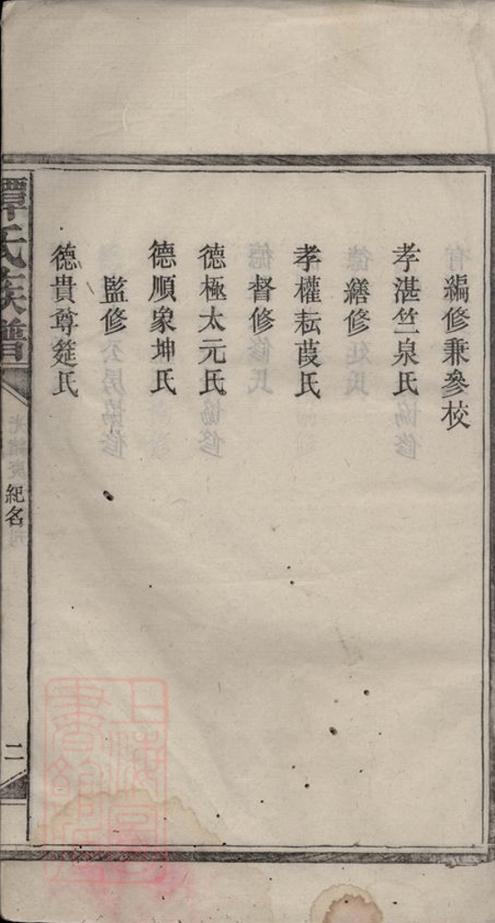 編修兼參校
孝湛竺泉氏
繕修
孝權耘葭氏
督修
德極太元氏
德順象坤氏
監修
德貴尊筵氏
譚氏族譜
紀名
二